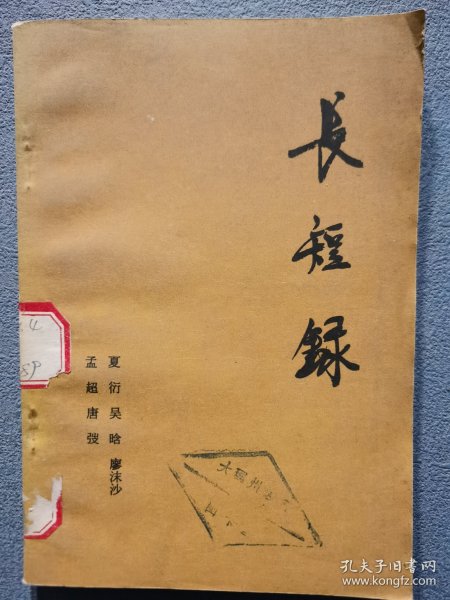 長短録
夏衍 吴晗 廖沫沙
孟超 唐弢
4
SP
孔夫子旧书网
www.kongfz.com